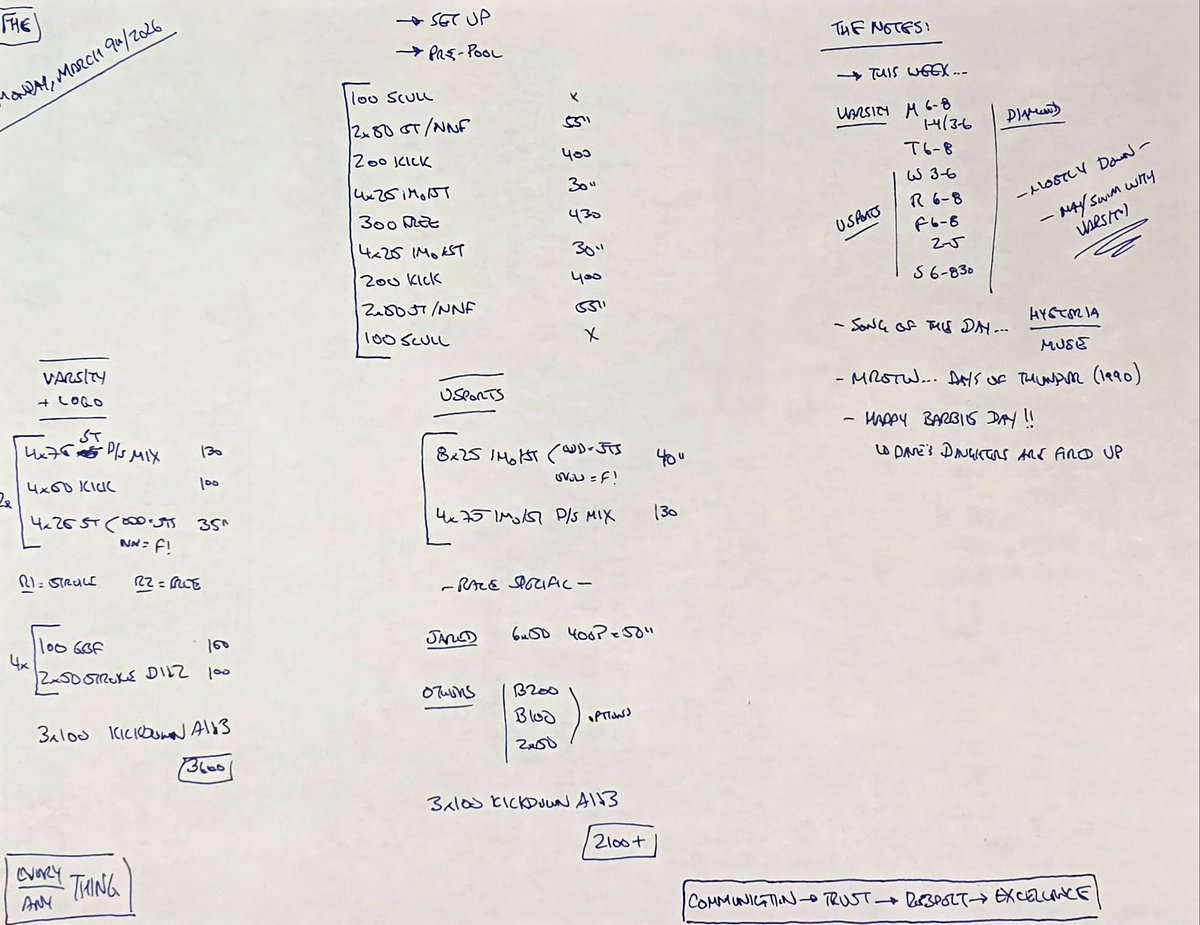 THE
MONDAY, MARCH 9th/2026
→ SET UP
→ PRE-POOL
100 SCULL X
2x50 ST/NNF 55"
200 KICK 400
4x25 IMO/ST 30"
300 FREE 430
4x25 IMO/ST 30"
200 KICK 400
2x50 ST/NNF 55"
100 SCULL X
VARSITY
+ LOGO
2x
4x75 ST P/S MIX 130
4x50 KICK 100
4x25 ST (ODD=STS 35"
EVEN=F!
R1=STROKE R2=FREE
4x
100 GBF 160
2x50 STROKE D1&2 100
3x100 KICKDOWN A1&3
3600
EVERY
ANY THING
USPORTS
8x25 IMO/ST (ODD=STS 40"
EVEN=F!
4x75 IMO/ST P/S MIX 130
- RACE SPECIFIC -
JARED 6x50 400P=50"
OTHERS B200
B100
2x50
OPTIONS
3x100 KICKDOWN A1&3
2100+
THE NOTES!
→ THIS WEEK...
VARSITY M 6-8
1-4/3-6
T 6-8
W 3-6
R 6-8
USPORTS F 6-8
2-5
S 6-830
DIAMOND
- MOSTLY DOWN -
- MAY SWIM WITH
VARSITY
- SONG OF THIS DAY... HYSTERIA
MUSE
- MROTW... DAYS OF THUNDER (1990)
- HAPPY BARBIE DAY!!
↳ DAVE'S DAUGHTERS ARE FIRED UP
COMMUNICATION → TRUST → RESPECT → EXCELLENCE